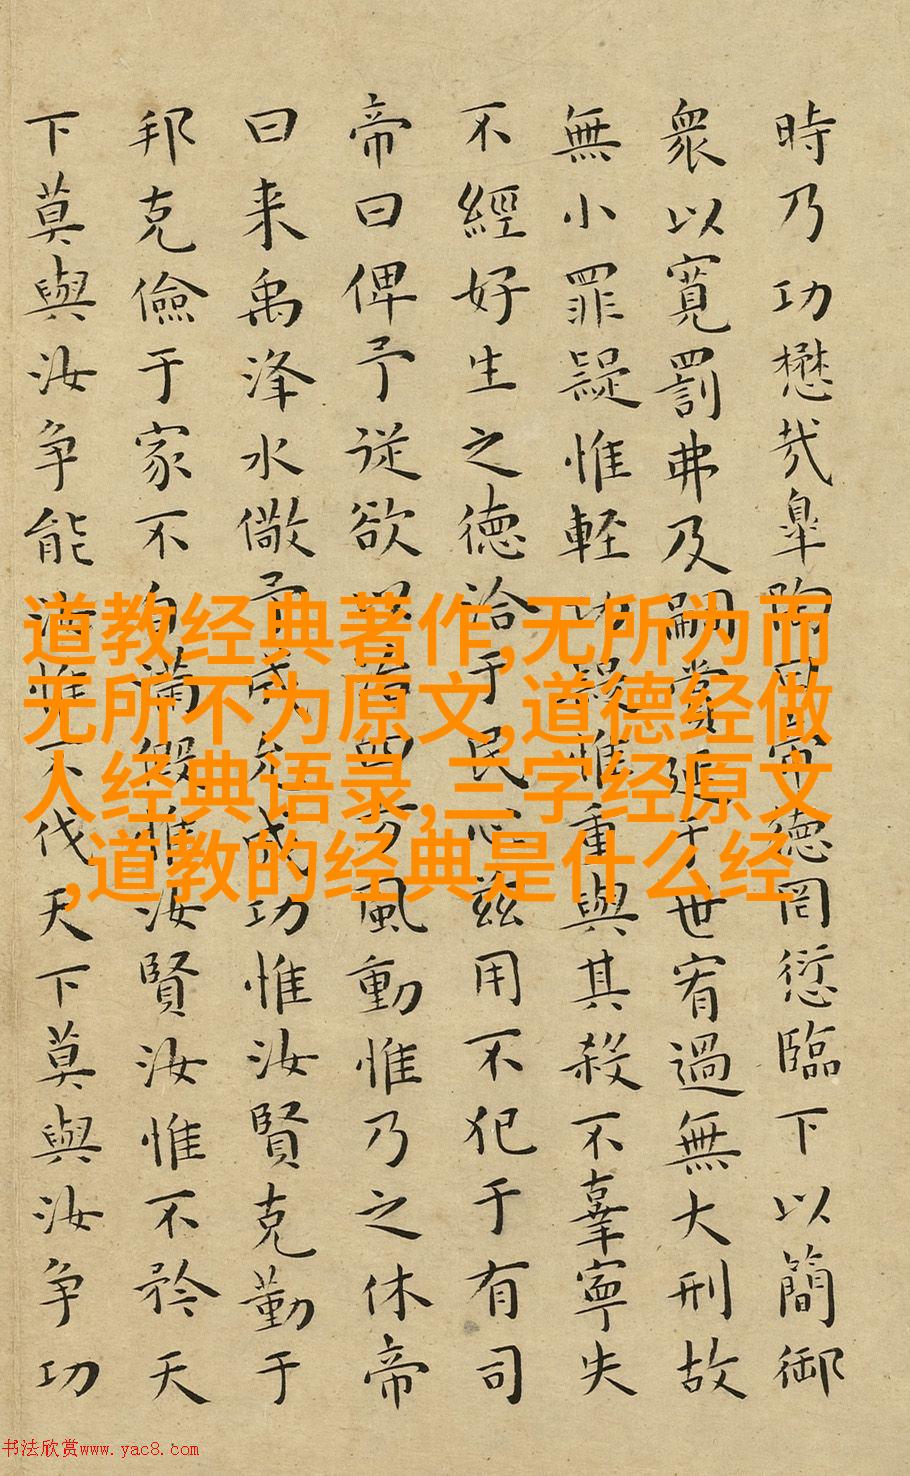 時乃功懋哉皐陶曰帝德罔愆臨下以簡御
衆以寬罰弗及嗣賞延于世宥過無大刑故
無小罪疑惟輕功疑惟重與其殺不辜寧失
不經好生之德洽于民心茲用不犯于有司
帝曰俾予從欲以治四方風動惟乃之休帝
曰来禹洚水儆予成允成功惟汝賢克勤于
邦克儉于家不自滿假惟汝賢汝惟不矜天
下莫與汝争能汝惟不伐天下莫與汝争功
道教经典著作,无所为而
无所不为原文,道德经做
人经典语录,三字经原文
,道教的经典是什么经
书法欣赏www.yac8.com